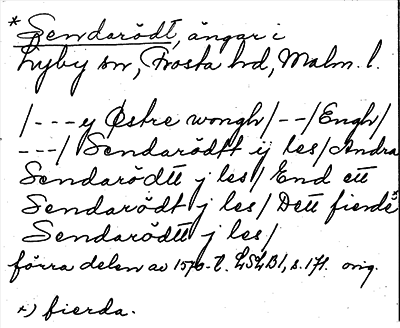 * Sendarödt, ängar i
Lyby sn, Frosta hd, Malm. l.
/---y Østre wongh/--/Engh/
---/ Sendarödtt ij les/ Andra
Sendarödtt j les/ End ett
Sendarödt j les/ Dett fierde*
Sendarödtt j les/
förra delen av 1570-t. LSLB1, s. 171. orig.
*) fierda.